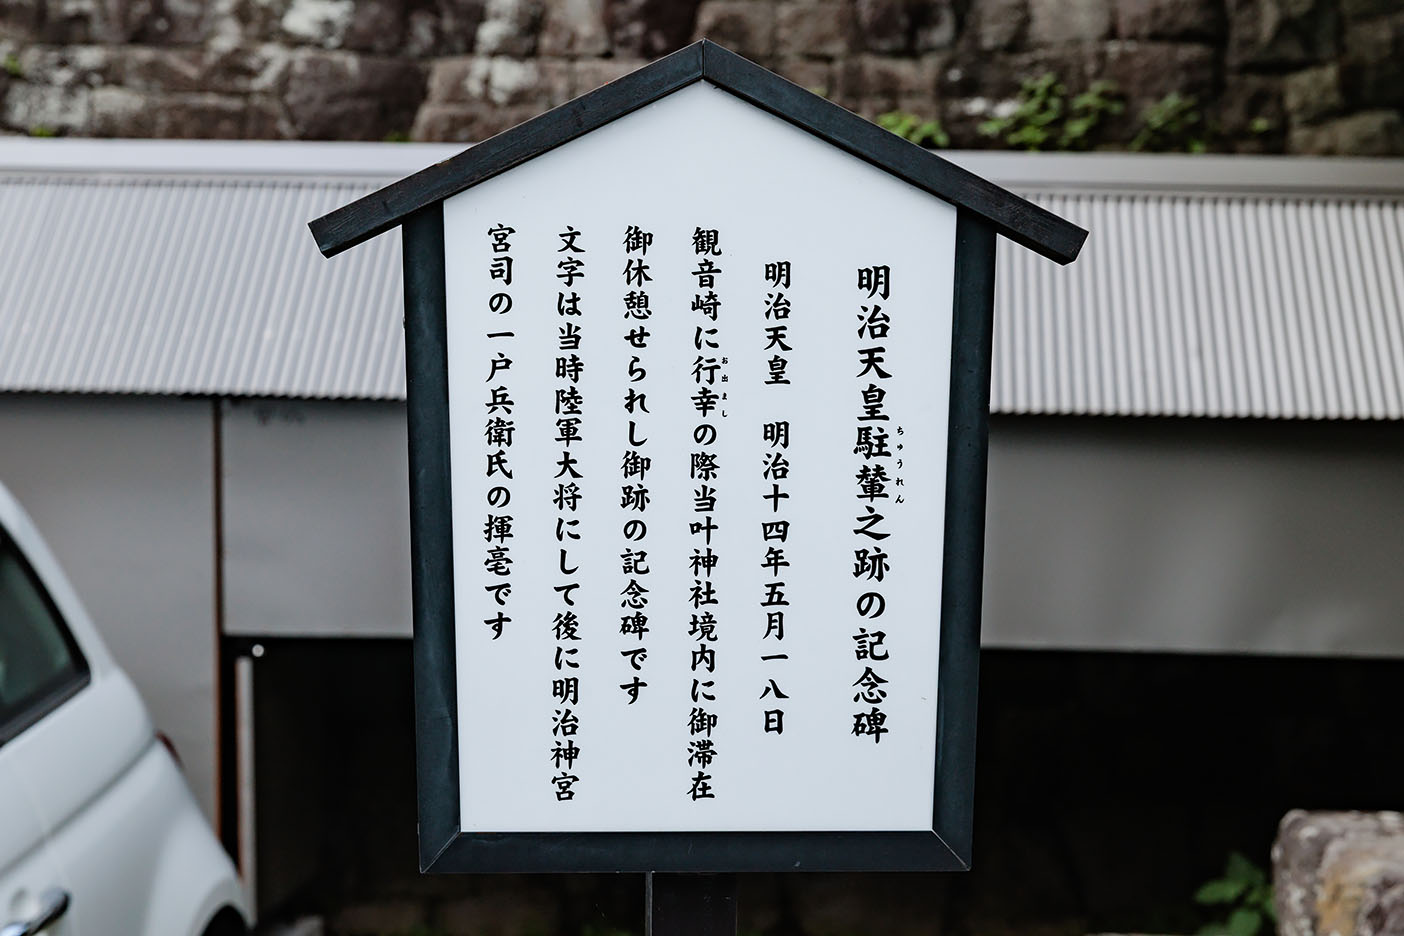 明治天皇駐輦之跡の記念碑
ちゅうれん
明治天皇　明治十四年五月一八日
観音崎に行幸の際当叶神社境内に御滞在
お出まし
御休憩せられし御跡の記念碑です
文字は当時陸軍大将にして後に明治神宮
宮司の一戸兵衛氏の揮毫です